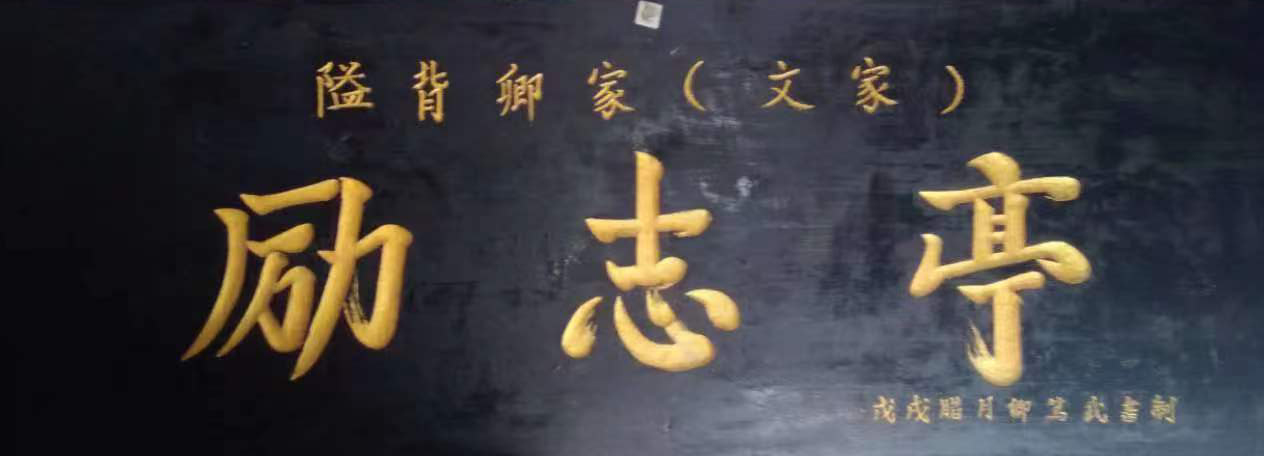 隘背卿家（文家）
励志亭
戊戌腊月柳笃武书制